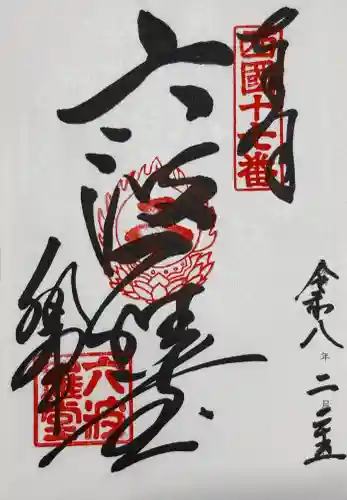 西國十七番
六波羅堂
六波羅堂
令和八年二月二十五